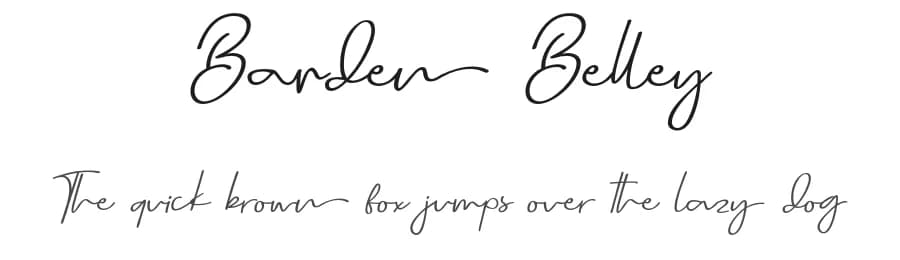 Barden Belley
The quick brown fox jumps over the lazy dog